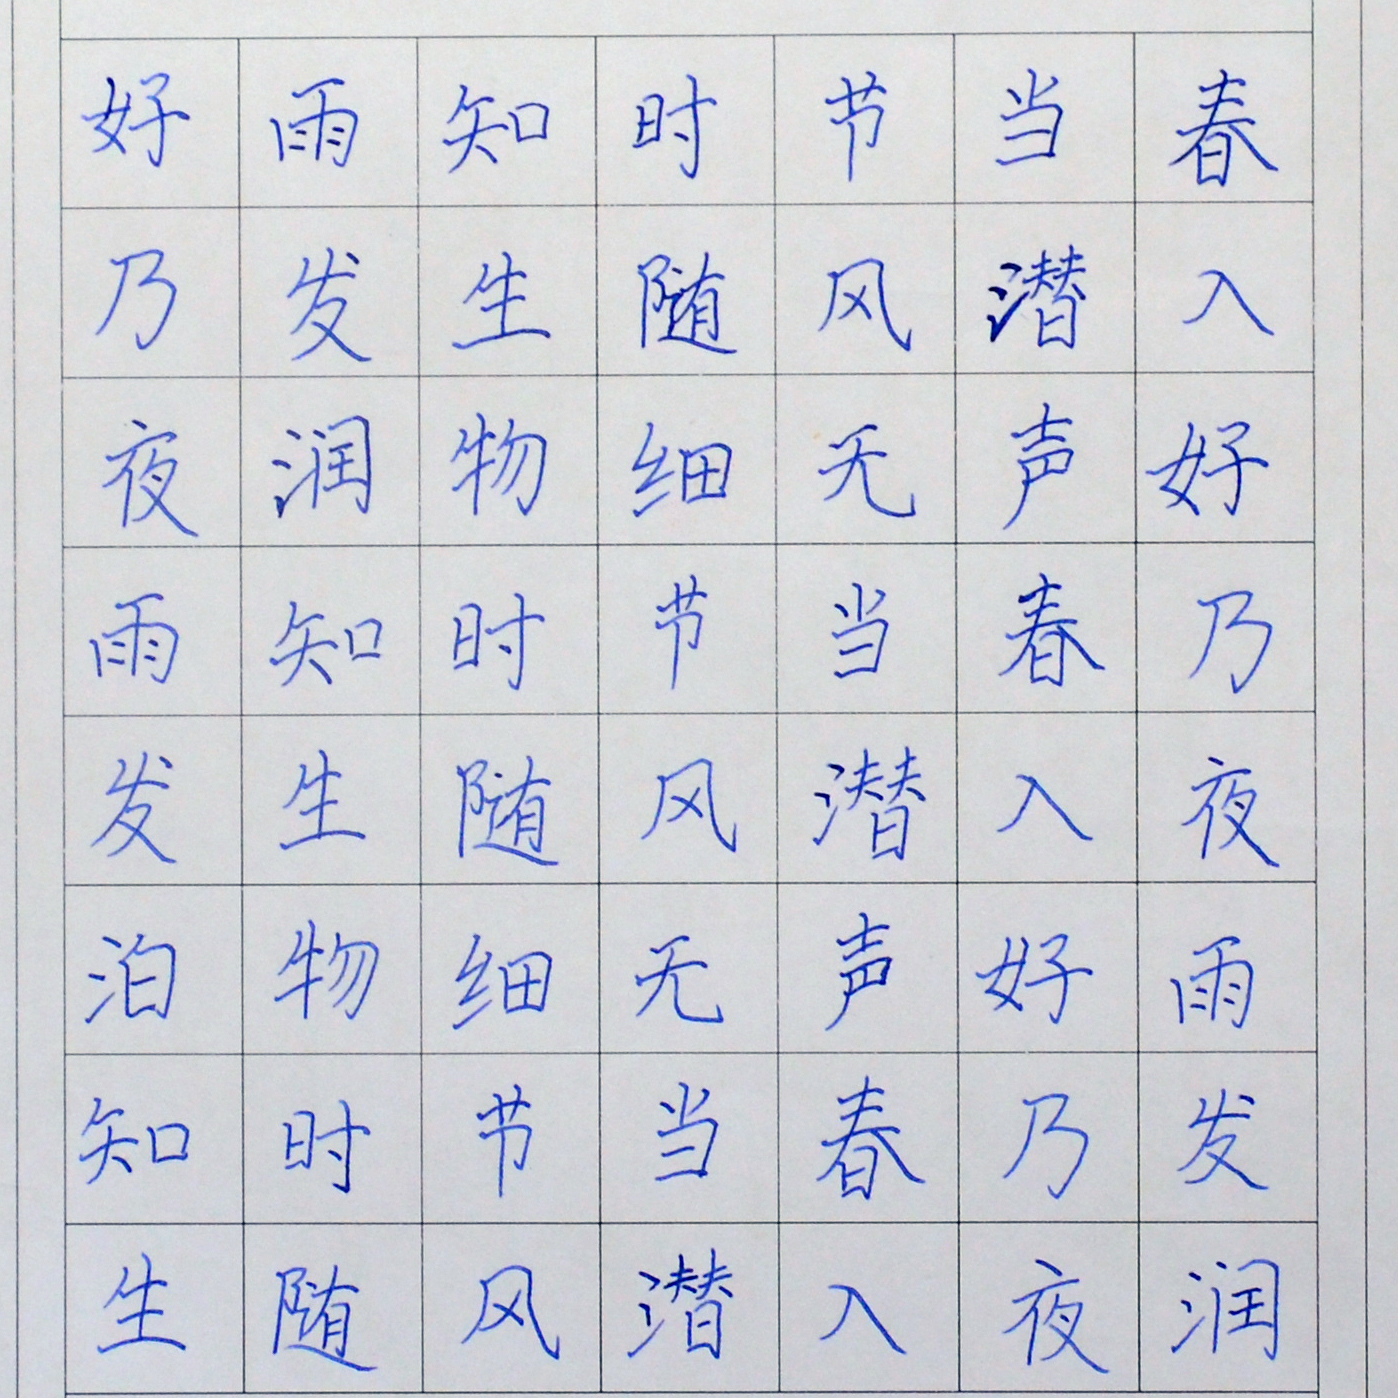 好雨知时节当春
乃发生随风潜入
夜润物细无声好
雨知时节当春乃
发生随风潜入夜
泊物细无声好雨
知时节当春乃发
生随风潜入夜润